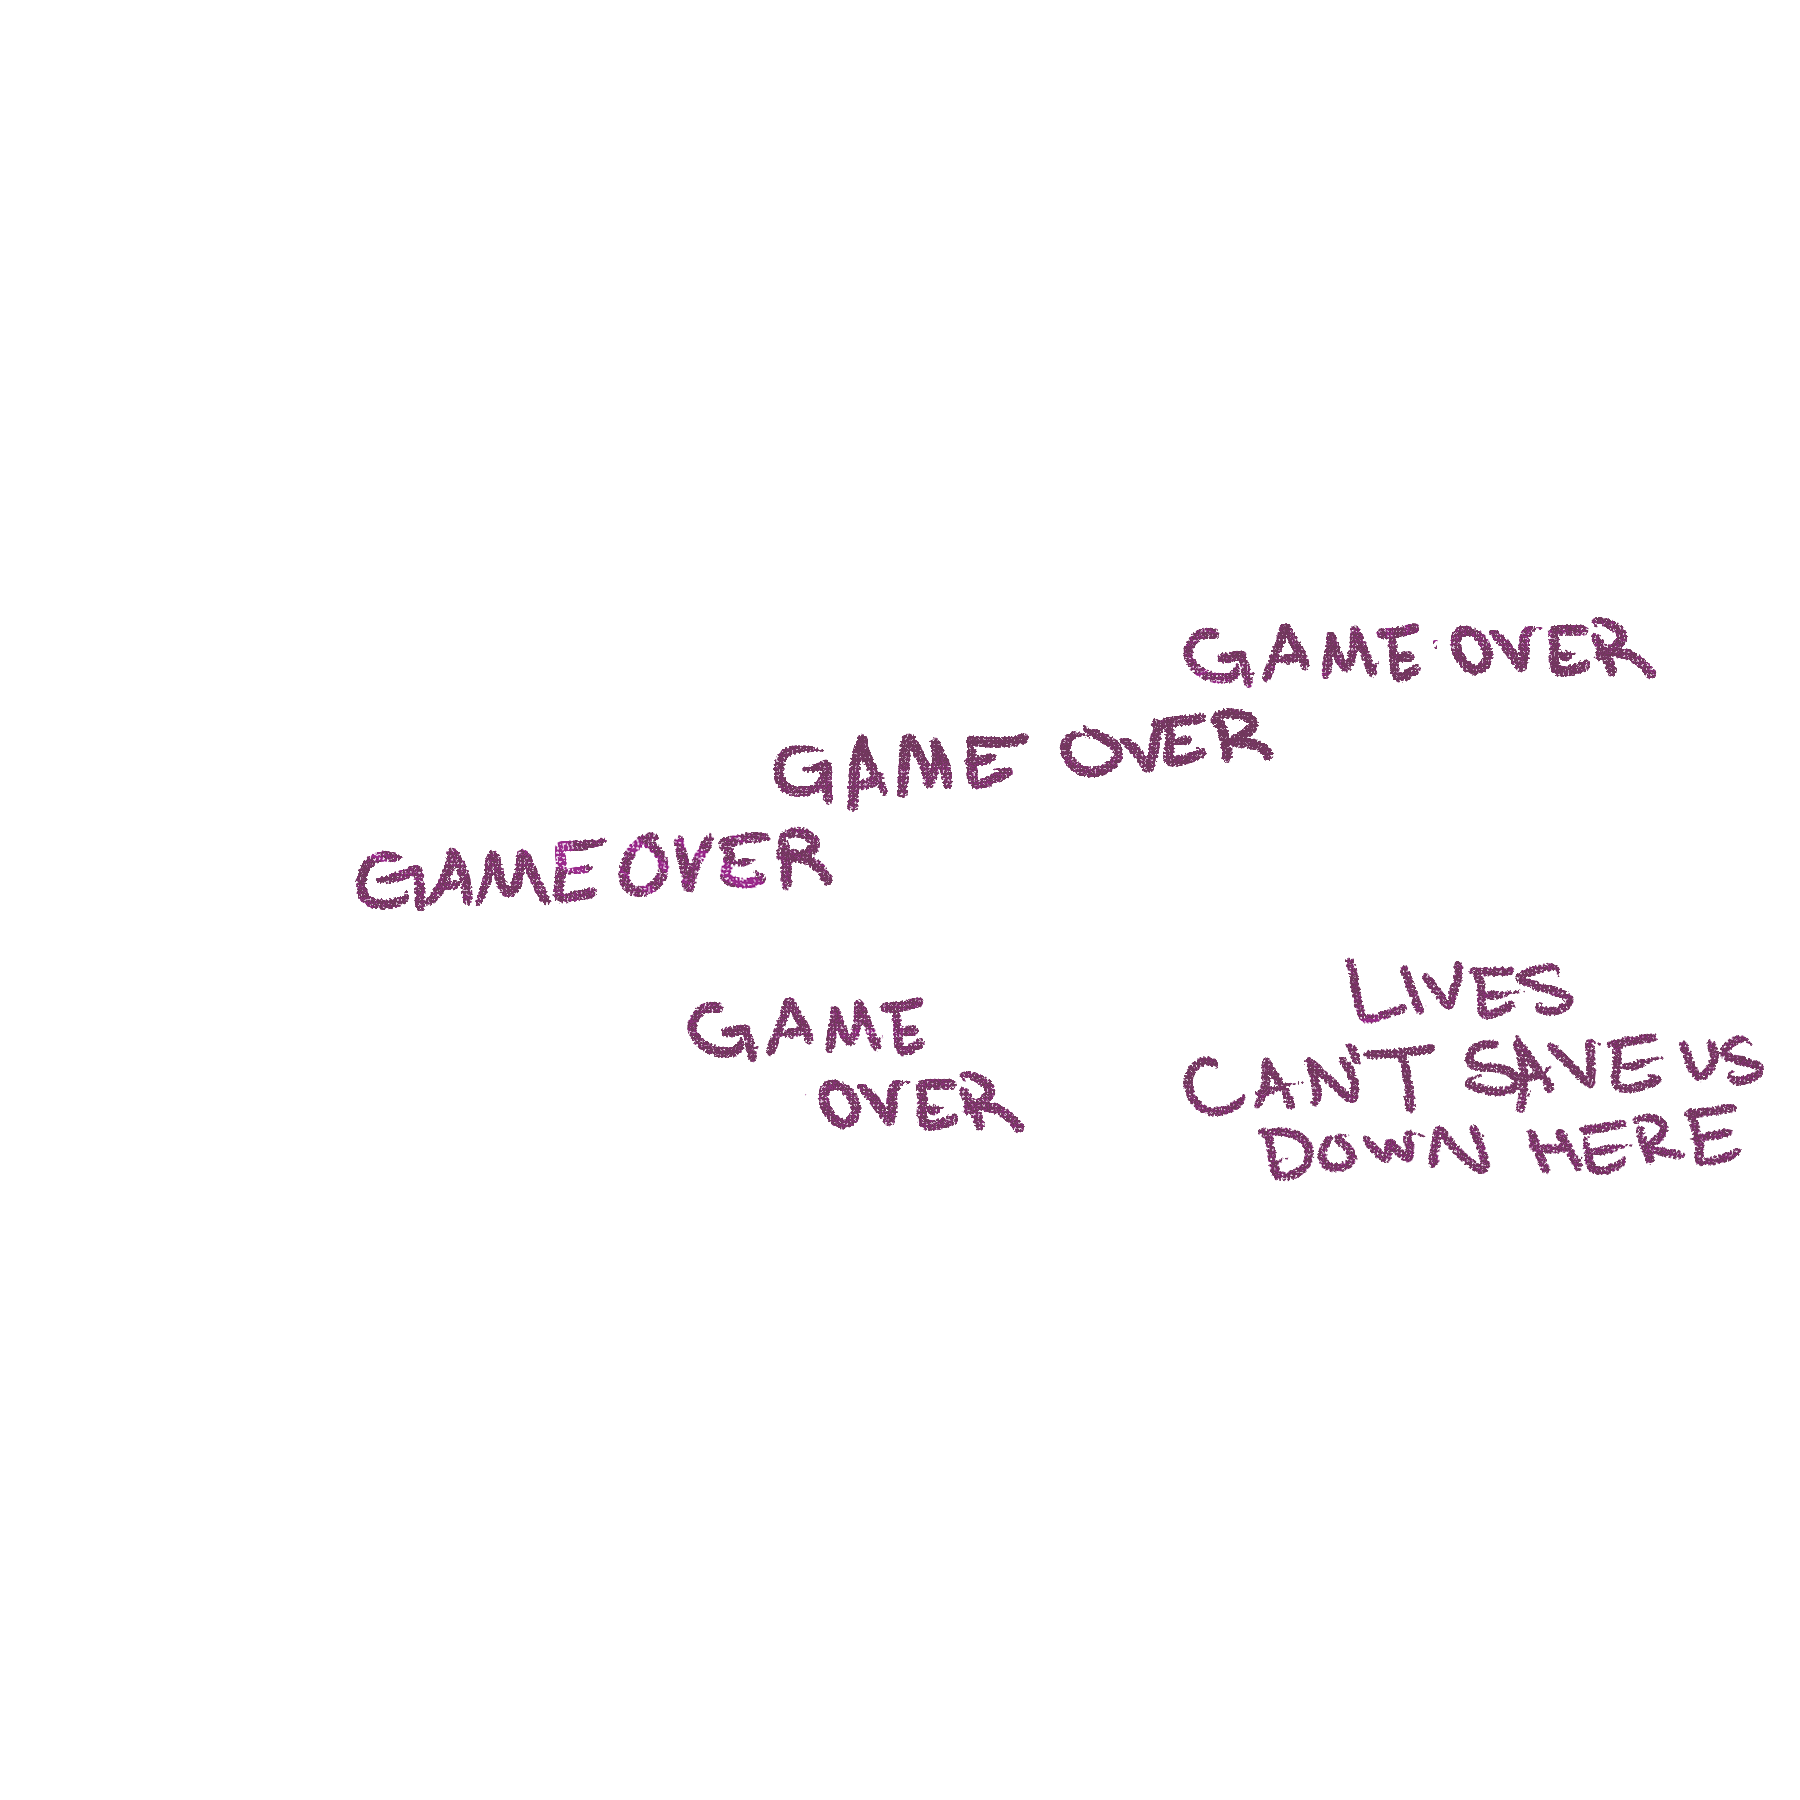 GAME OVER
GAME OVER
GAME OVER
GAME
OVER
LIVES
CAN'T SAVE US
DOWN HERE